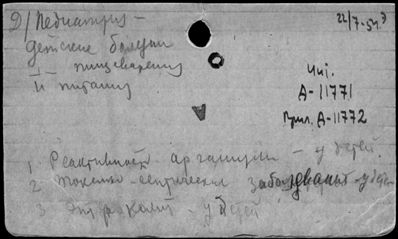 9/ Педиатрия –
22/7-54 э
Детские болезни
пищеварения
и питания
Чит.
А-11771
Прил. А-11772
1 Реактивность организма – у детей.
2 Токсико-септические заболевания – у детей
3 Энтероколит – у детей